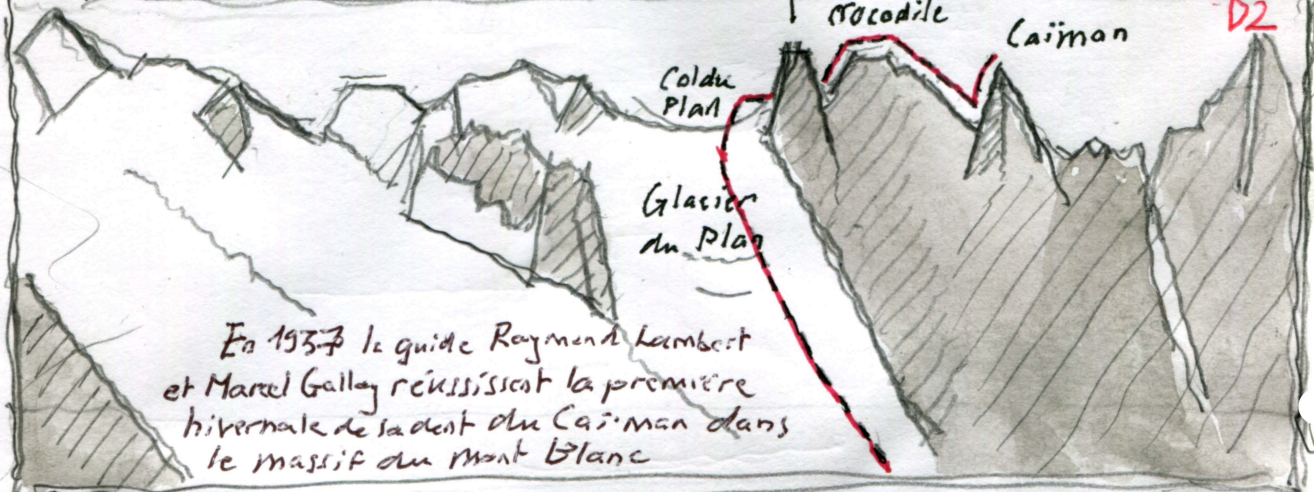 Crocodile
Caïman
D2
Col du
Plan
Glacier
du Plan
En 1937 le guide Raymond Lambert
et Marcel Gallay réussissent la première
hivernale de la dent du Caïman dans
le massif du Mont Blanc